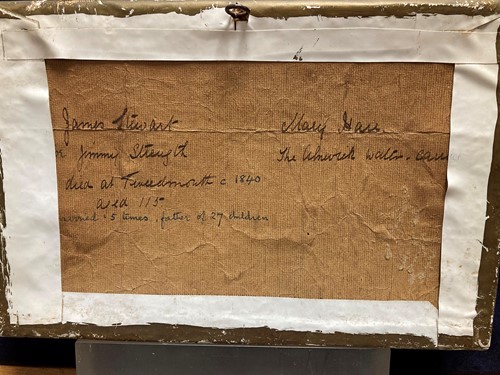 James Stewart
or Jimmy Strength
died at Tweedmouth c 1840
aged 115
married 5 times, father of 27 children
Mary Hare
The Alnwick water-